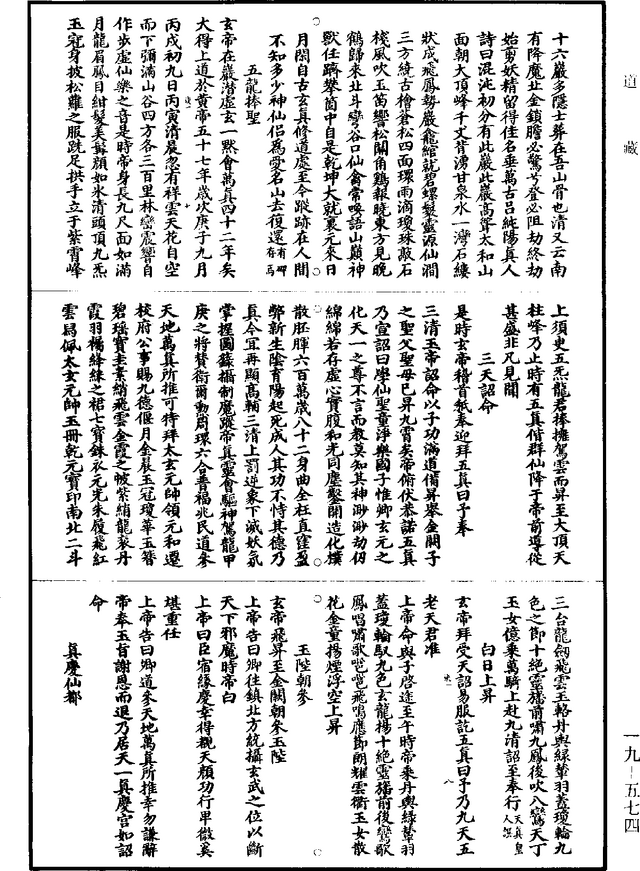 道藏
十六巖多隱士葬在吾山骨也清又云南
有降魔北金鎖膽必驚兮登必阻劫終劫
始剪妖精留得佳名垂萬古呂純陽真人
詩曰混沌初分有此巖此巖高聳太和山
面朝大頂峰千丈背湧甘泉水一灣石縷
狀成飛鳳勢巖龕綰就碧螺鬟靈源仙澗
三方繞古檜蒼松四面環雨滴瓊珠敲石
棧風吹玉笛響松關角鷄報曉東方見晚
鶴歸來北斗彎谷口仙禽常喚語山巔神
獸任躋攀箇中自是乾坤大就裏元來日
月閑自古玄真修道處至今蹤跡在人間
不知多少神仙侶爲愛名山去復還
五龍捧聖
玄帝在巖潛虛玄一默會萬真四十二年矣
大得上道於黃帝五十七年歲次庚子九月
丙戌初九日丙寅清晨忽有祥雲天花自空
而下彌滿山谷四方各三百里林巒震響自
作步虛仙樂之音是時帝身長九尺面如滿
月龍眉鳳目紺髮美髯顏如氷清頭頂九炁
玉冠身披松蘿之服跣足拱手立于紫霄峰
上須臾五炁龍君捧擁駕雲而昇至大頂天
柱峰乃止時有五真偕群仙降于帝前導從
甚盛非凡見聞
三天詔命
是時玄帝稽首祇奉迎拜五真曰予奉
三清玉帝詔命以子功滿道備昇舉金闕子
之聖父聖母已昇九霄矣帝俯伏恭諾五真
乃宣詔曰學仙聖童淨樂國子惟卿玄元之
化天一之尊不言而教莫知其神渺渺劫仞
綿綿若存虛心實腹和光同塵鑿開造化撲
散胚腪六百萬歲八十二身曲全枉直窪盈
弊新生陰育陽起死成人其功不恃其德乃
真今宜再顯高輔三清上罰逆衆下滅妖氛
掌握圖籙攝制魔蹤帝真靈會驅神駕龍甲
庚之將贊衛爾勳周環六合普福兆民道參
天地萬真所推可特拜太玄元帥領元和遷
校府公事賜九德偃月金晨玉冠瓊華玉簪
碧瑶寶圭素綃飛雲金霞之帔紫綃龍袞丹
霞羽襡絳綵之裙七寶銖衣元光朱履飛紅
雲舄佩太玄元帥玉冊乾元寶印南北二斗
三台龍劒飛雲玉輅丹輿綠輦羽蓋瓊輪九
色之節十絕靈旛前嘯九鳳後吹八鸞天丁
玉女億乘萬騎上赴九清詔至奉行
白日上昇
玄帝拜受天詔易服訖五真曰予乃九天五
老天君准
上帝命與子啓途至午時帝乘丹輿綠輦羽
蓋瓊輪馭九色玄龍揚十絕靈旛前後鸞歌
鳳唱嘯歌嗈嗈飛鳴應節朗耀雲衢玉女散
花金童揚煙浮空上昇
玉陛朝參
玄帝飛昇至金闕朝參玉陛
上帝告曰卿往鎮北方統攝玄武之位以斷
天下邪魔時帝白
上帝曰臣宿緣慶幸得覩天顏功行卑微奚
堪重任
上帝告曰卿道參天地萬真所推幸勿謙辭
帝奉玉旨謝恩而退乃居天一真慶宮如詔
命
真慶仙都
一九—五七四